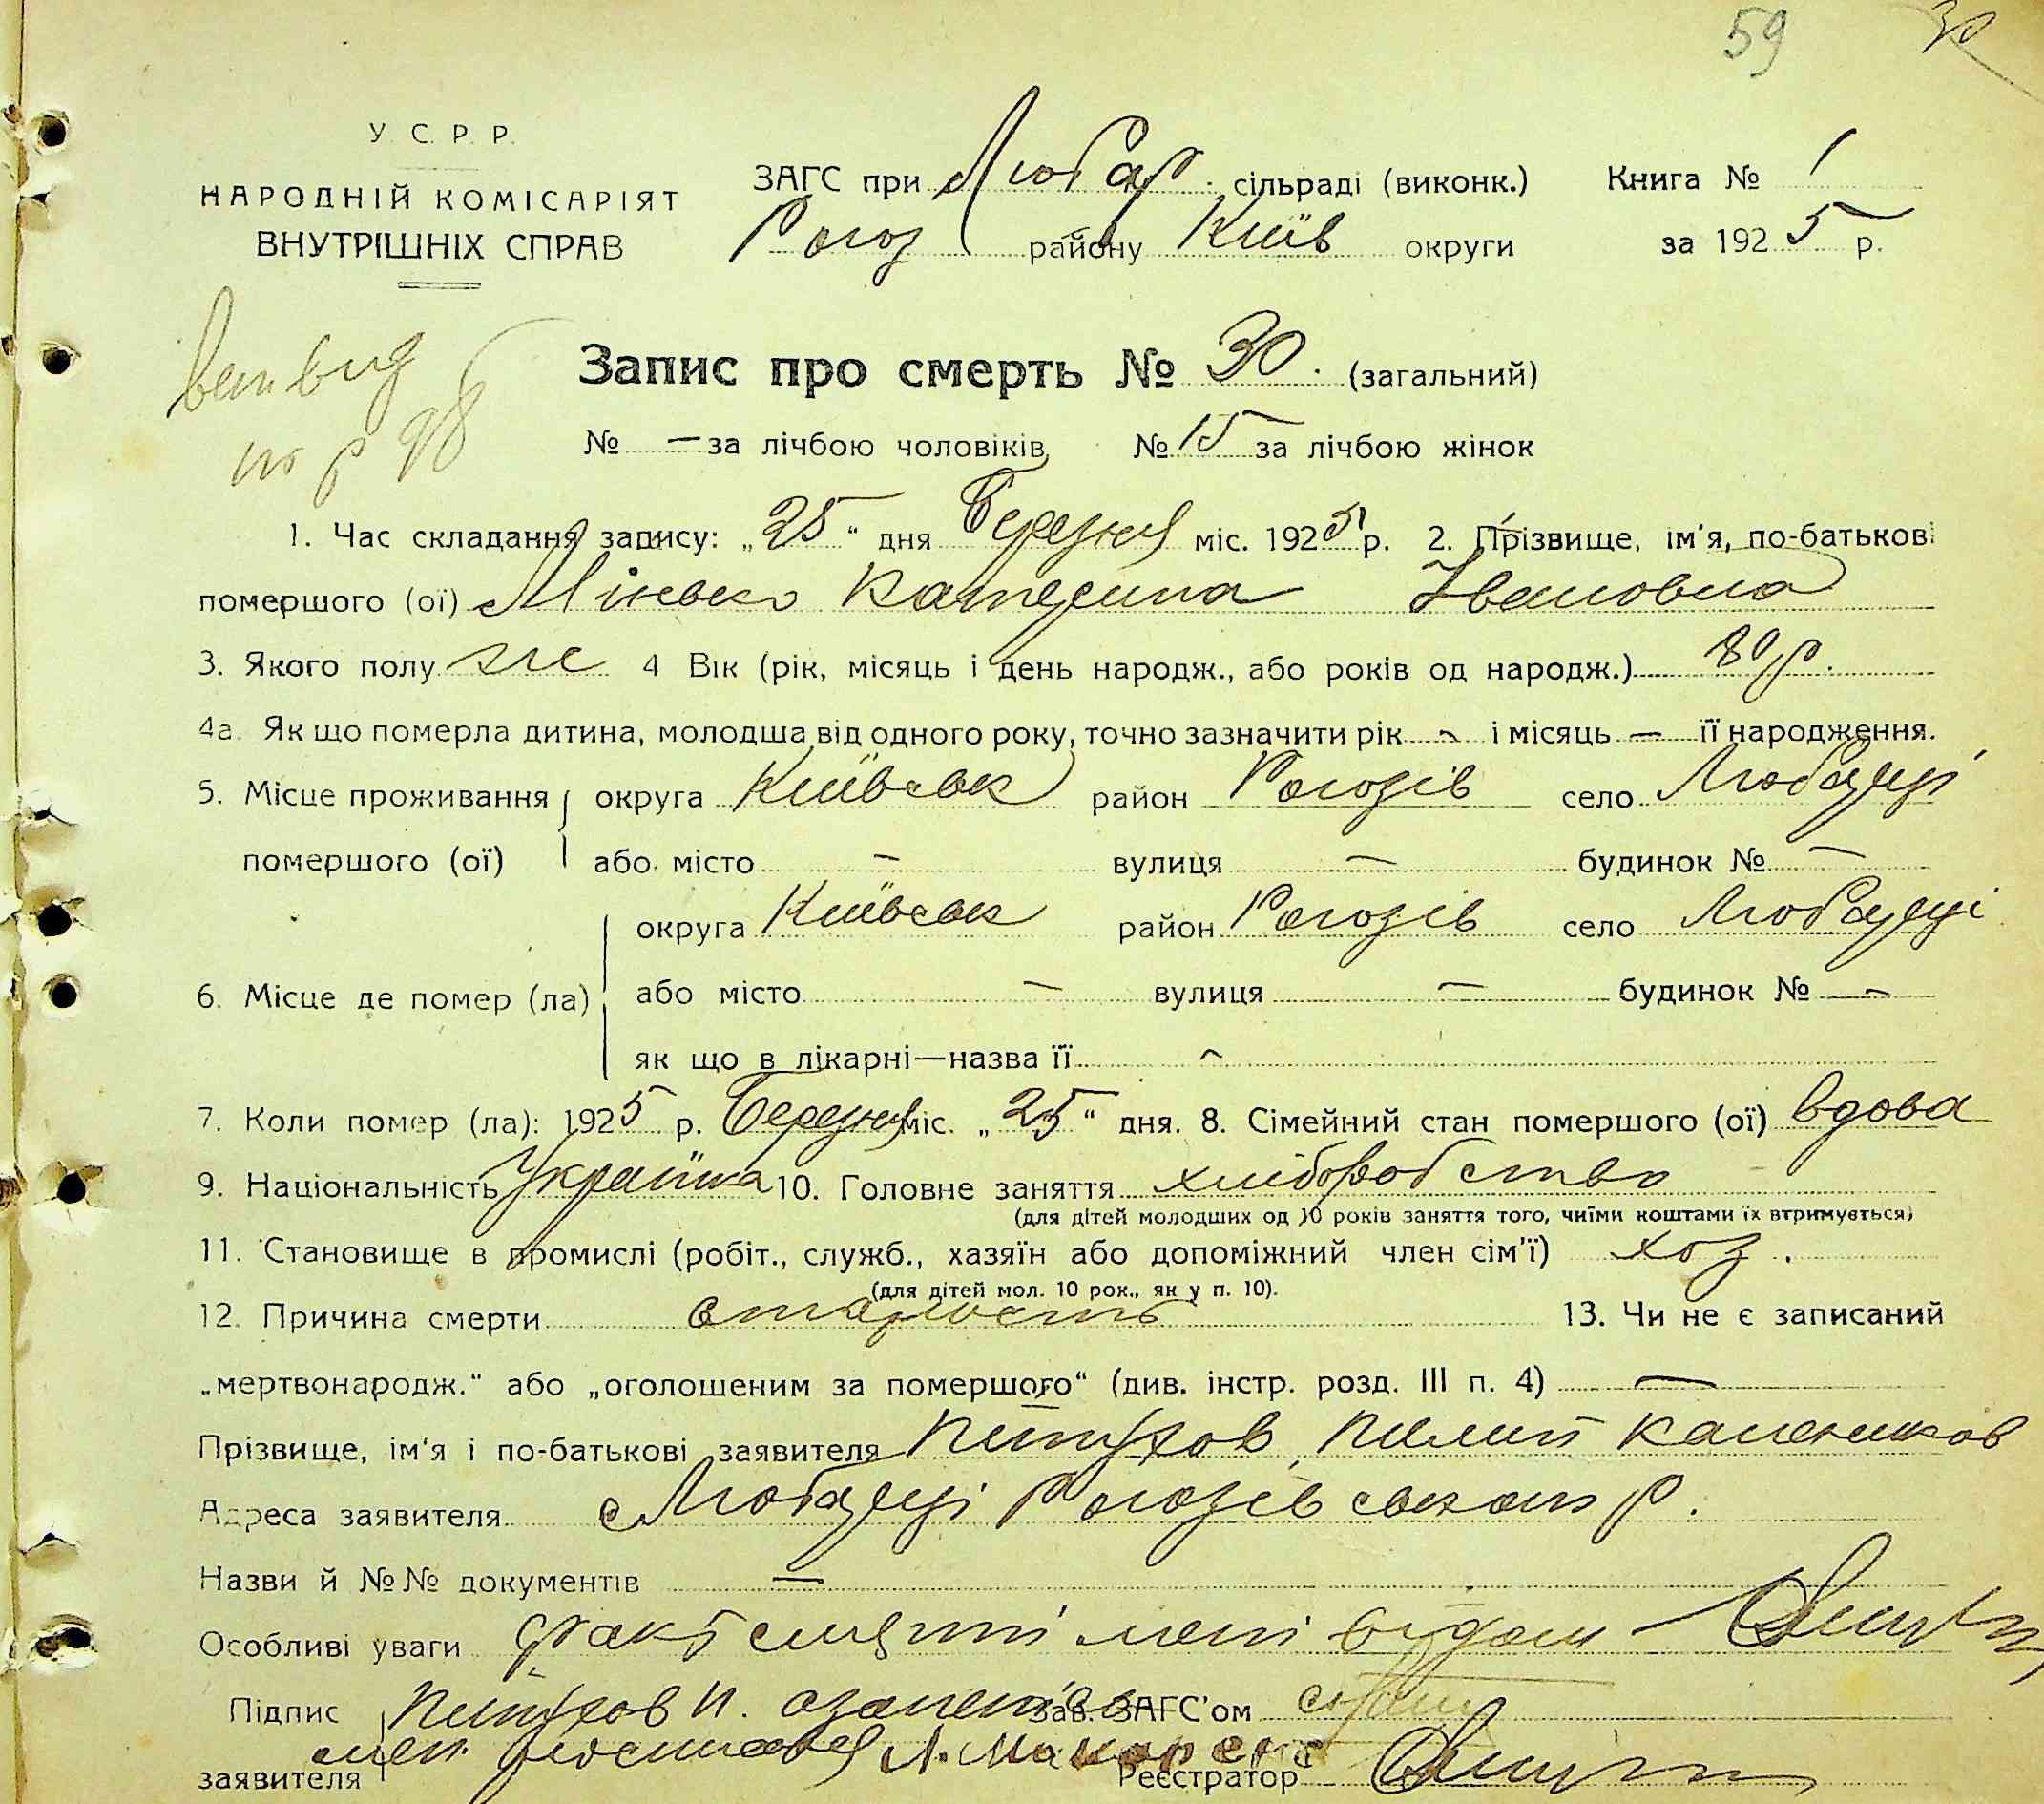 59 30
У. С. Р. Р.
НАРОДНІЙ КОМІСАРІЯТ
ВНУТРІШНІХ СПРАВ
ЗАГС при Любар. сільраді (виконк.) Книга № 1
Рогоз району Київ округи за 1925 р.
Запис про смерть № 30. (загальний)
№ — за лічбою чоловіків, № 15 за лічбою жінок
1. Час складання запису: „25“ дня Березня міс. 1925 р. 2. Прізвище, ім'я, по-батькові
помершого (ої) Катерина Івановна
3. Якого полу жс 4 Вік (рік, місяць і день народж., або років од народж.) 80 р.
4а. Як що померла дитина, молодша від одного року, точно зазначити рік — і місяць — її народження.
5. Місце проживання округа Київськ район Рогозів село Любарці
помершого (ої) або місто — вулиця — будинок № —
округа Київськ район Рогозів село Любарці
6. Місце де помер (ла) або місто — вулиця — будинок № —
як що в лікарні—назва її —
7. Коли помер (ла): 1925 р. Березня міс. „25“ дня. 8. Сімейний стан помершого (ої) вдова
9. Національність Українка 10. Головне заняття хліборобство
(для дітей молодших од 10 років заняття того, чиїми коштами їх втримується)
11. Становище в промислі (робіт., служб., хазяїн або допоміжний член сім'ї) хоз.
(для дітей мол. 10 рок., як у п. 10).
12. Причина смерти старость 13. Чи не є записаний
„мертвонародж.“ або „оголошеним за помершого“ (див. інстр. розд. III п. 4) —
Прізвище, ім'я і по-батькові заявителя
Адреса заявителя с Любарці Рогозів р.
Назви й №№ документів —
Особливі уваги факт смерті мені відом
Підпис Зав. ЗАГС'ом
Л. Макарен
заявителя Реєстратор